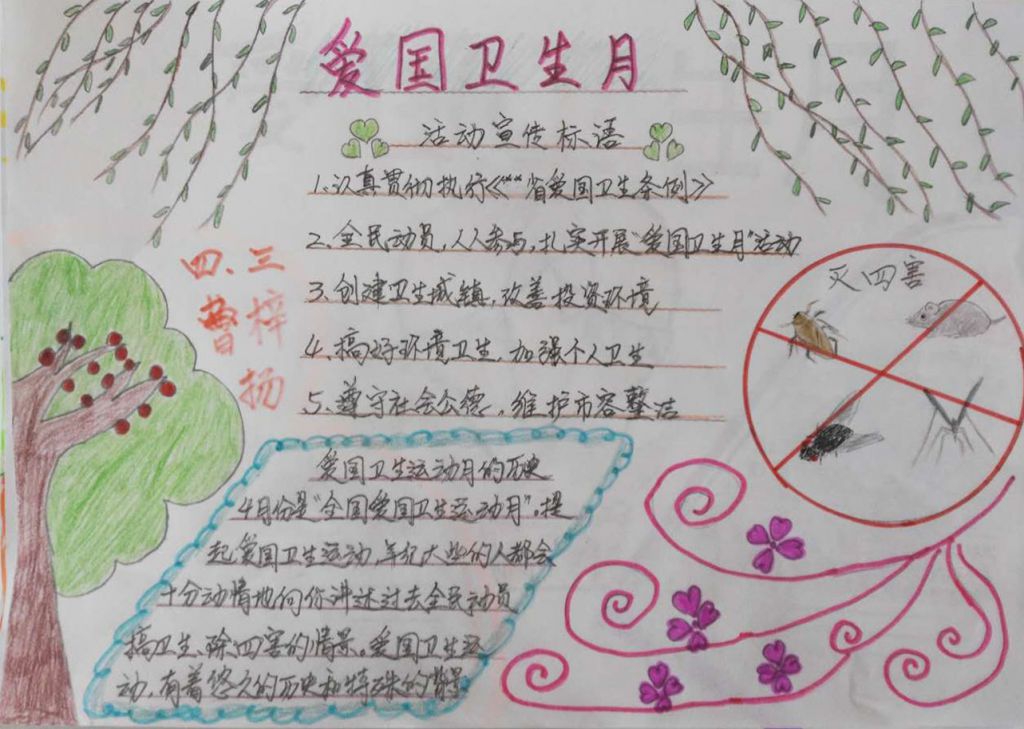 爱国卫生月
活动宣传标语
1.认真贯彻执行《**省爱国卫生条例》
2.全民动员,人人参与,扎实开展“爱国卫生月”活动
3.创建卫生城镇,改善投资环境
4.搞好环境卫生,加强个人卫生
5.遵守社会公德,维护市容整洁
四、三
曹梓
扬
灭四害
爱国卫生运动月的历史
4月份是“全国爱国卫生运动月”。提
起爱国卫生运动,年纪大些的人都会
十分动情地向你讲述过去全民动员
搞卫生、除四害的情景。爱国卫生运
动,有着悠久的历史和特殊的背景